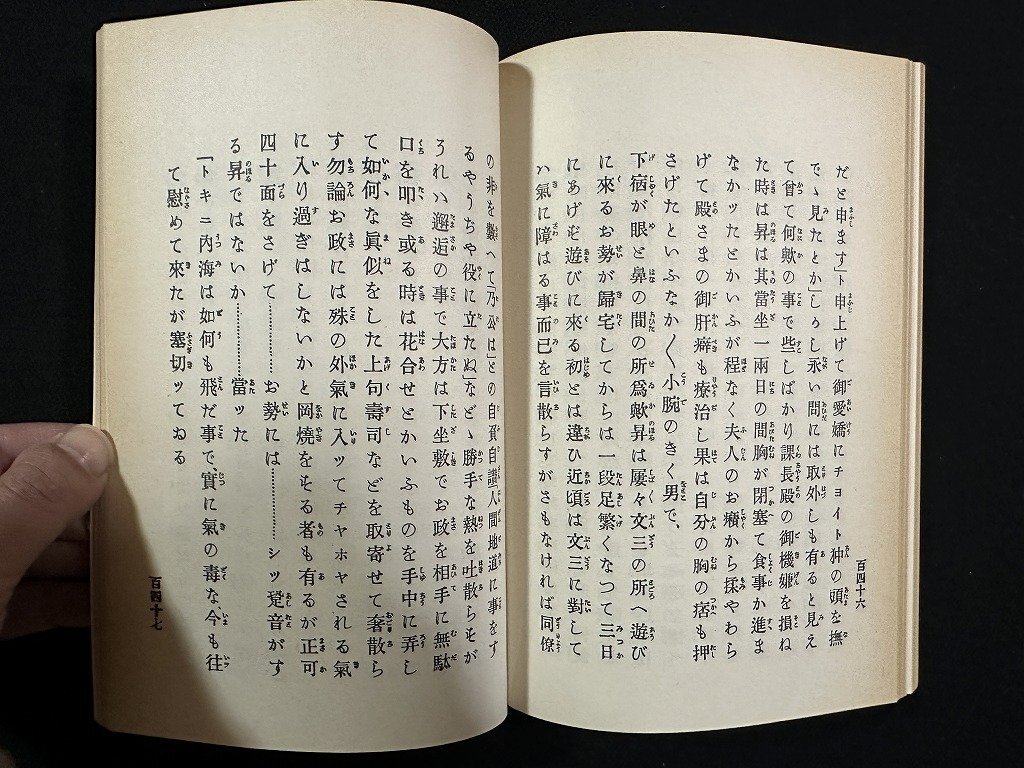 だと申ます」ト申上げて御愛嬌にチョイト狆の頭を撫
でゝ見たとか」しかし永い間には取外しも有ると見え
て曾て何歟の事で些しばかり課長殿の御機嫌を損ね
た時は昇は其當坐一兩日の間胸が閉塞て食事が進ま
なかッたとかいふが程なく夫人のお癪から揉やわら
げて殿さまの御肝癖も療治し果は自分の胸の痞も押
さげたといふなか〳〵小腕のきく男で、
下宿が眼と鼻の間の所爲歟昇は屡々文三の所へ遊び
に來るお勢が歸宅してからは一段足繁くなつて三日
にあげず遊びに來る初とは違ひ近頃は文三に對して
ハ氣に障はる事而已を言散らすがさもなければ同僚
百四十六
の非を數へて「乃公は」との自負自讃「人間地道に事をす
るやうぢや役に立たぬ」などゝ勝手な熱を吐散らすが
それハ邂逅の事で大方は下坐敷でお政を相手に無駄
口を叩き或る時は花合せとかいふものを手中に弄し
て如何な眞似をした上句壽司などを取寄せて奢散ら
す勿論お政には殊の外氣に入ッてチヤホヤされる氣
に入り過ぎはしないかと岡燒をする者も有るが正可
四十面をさげて……………お勢には……………シッ跫音がす
る昇ではないか……………當ッた
「トキニ内海は如何も飛だ事で、實に氣の毒な、今も往
て慰めて來たが塞切ッてゐる
百四十七